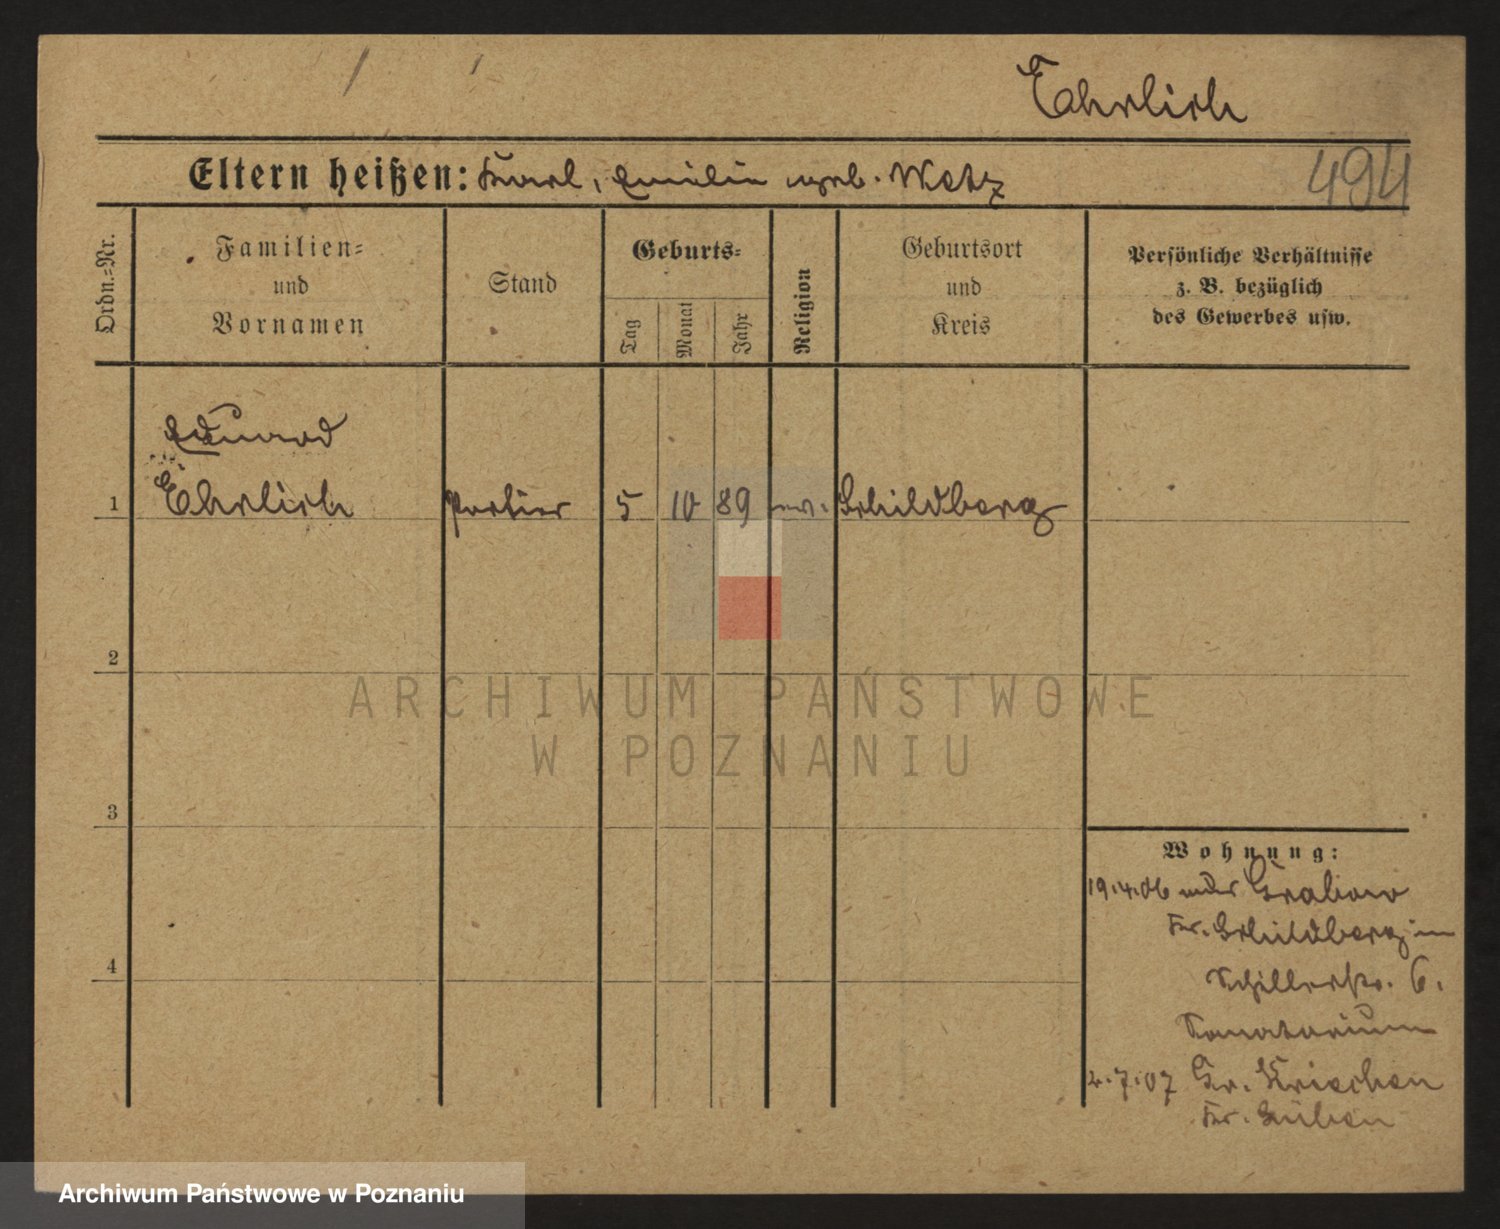 Ehrlich
Eltern heißen: Karl, Emilie geb. Metz
494
Ordn.=Nr.
Familien=
und
Vornamen
Stand
Geburts=
Tag
Monat
Jahr
Religion
Geburtsort
und
Kreis
Persönliche Verhältnisse
z. B. bezüglich
des Gewerbes usw.
Eduard
1 Ehrlich Portier 5 10 89 ev. Schildberg
2
3
4
Wohnung:
19.4.06 Grabow
Kr. Schildberg in
Schillerstr. 6.
Sanatorium
2.7.07 Gr. Kriechen
Kr. Lüben
ARCHIWUM PAŃSTWOWE
W POZNANIU
Archiwum Państwowe w Poznaniu